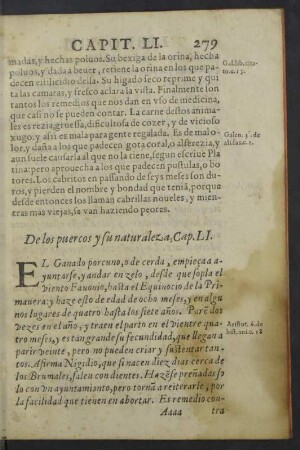 CAPIT. LI. 279
madas, y hechas poluos. Su bexiga de la orina, hecha
poluos, y dada a beuer, retiene la orina en los que pa-
decen estilicidio della. Su higado seco reprime y qui
ta las camaras, y fresco aclara la vista. Finalmente son
tantos los remedios que nos dan en vso de medicina,
que casi no se pueden contar. La carne destos animа-
les es rezia, gruessa, dificultosa de cozer, y de vicioso
xugo, y assi es mala para gente regalada. Es de malo-
lor, y daña a los que padecen gota coral, o alferezia, y
aun suele causarla al que no la tiene, segun escriue Pla
tina; pero aprouecha a los que padecen pustulas, o bo
tores. Los cabritos en passando de seys meses son du-
ros, y pierden el nombre y bondad que tenia, porque
desde entonces los llaman cabrillos nouoles, y mien-
tras mas viejas, se van haziendo peores.
Galib. cita-
to. c. 13.
Galen. 3. de
ali. fac. c. 1.
De los puercos y su naturaleza, Cap. LI.
EL Ganado porcuno, o de cerda, empieça a
ayuntarse, y andar en zelo, desde que sopla el
viento Fauonio, hasta el Equinocio de la Pri-
mauera: y haze esto de edad de ocho meses, y en algu
nos lugares de quatro hasta los siete años. Paré dos
vezes en el año, y traen el parto en el vientre qua-
tro meses, y es tan grande su fecundidad, que llegan a
parir veinte, pero no pueden criar y sustentar tan-
tos. Afirma Nigidio, que si nacen diez dias cerca de
los Brumales, salen con dientes. Hazese preñadas so
lo con vn ayuntamiento, pero torna a reiterarle, por
la facilidad que tienen en abortar. Es remedio con-
Aristot. 6. de
hist. ani. c. 18
Aaaa tra